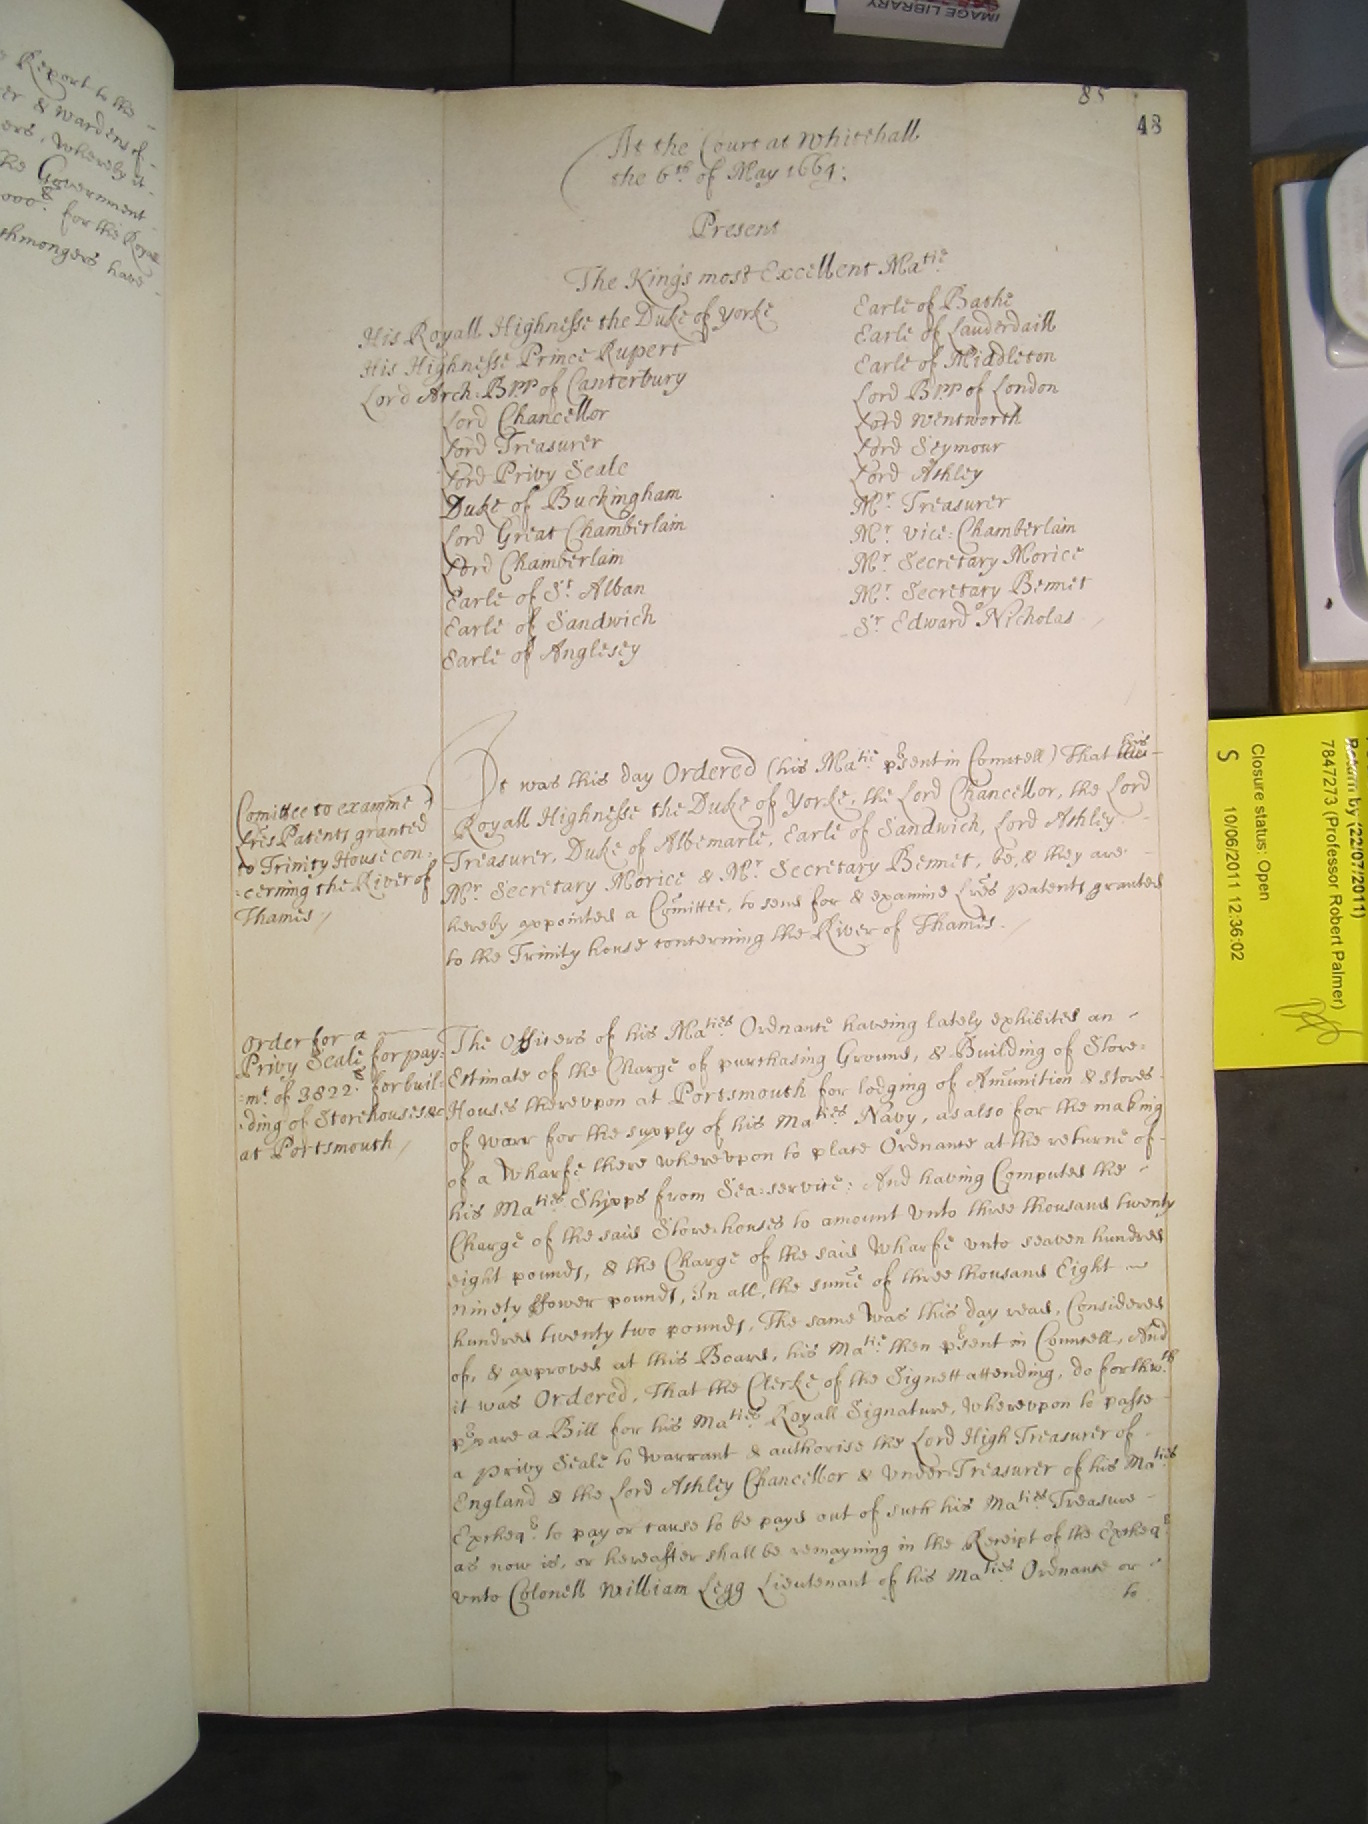 IMAGE LIBRARY
Report to the
er & Wardens of
ers, Whereby it
he Government
000£ for the Royall
shmongers have
85
48
At the Court at Whitehall
the 6th of May 1664:
Present
The Kings most Excellent Matie
His Royall Highnesse the Duke of Yorke
His Highnesse Prince Rupert
Lord Arch: Bpp of Canterbury
Lord Chancellor
Lord Treasurer
Lord Privy Seale
Duke of Buckingham
Lord Great Chamberlain
Lord Chamberlain
Earle of St. Alban
Earle of Sandwich
Earle of Anglesey
Earle of Bathe
Earle of Lauderdaill
Earle of Middleton
Lord Bpp of London
Lord Wentworth
Lord Seymour
Lord Ashley
Mr. Treasurer
Mr. Vice: Chamberlain
Mr. Secretary Morice
Mr. Secretary Bennet
Sr. Edward Nicholas
Comittee to examine
Lres Patents granted
to Trinity House con:
:cerning the River of
Thames/
It was this day Ordered (his Matie psent in Councell) That his
Royall Highnesse the Duke of Yorke, the Lord Chancellor, the Lord
Treasurer, Duke of Albemarle, Earle of Sandwich, Lord Ashley
Mr. Secretary Morice & Mr. Secretary Bennet, be, & they are
hereby appointed a Comittee, to send for & examine Lres Patents granted
to the Trinity house concerning the River of Thames./
Order for a
Privy Seale for pay:
:mt. of 3822£ for buil:
:ding of Storehouses &c
at Portsmouth/
The Officers of his Maties Ordnance haveing lately exhibited an
Estimate of the Charge of purchasing Ground, & Building of Store:
Houses therevpon at Portsmouth for lodging of Amunition & stores
of warr for the supply of his Maties Navy, as also for the making
of a Wharfe there wherevpon to place Ordnance at the returne of
his Maties Shipps from Sea:service: And having Computed the
Charge of the said Store:houses to amount vnto three thousand twenty
eight pounds, & the Charge of the said Wharfe vnto seaven hundred
ninety ffower pounds, In all, the sume of three thousand Eight
hundred twenty two pounds, The same Was this day read, Considered
of, & approved at this Board, his Matie then psent in Councell, And
it was Ordered, That the Clerke of the Signett attending, do forthwth
ppare a Bill for his Maties Royall Signature, wherevpon to passe
a privy Seale to Warrant & authorise the Lord High Treasurer of
England & the Lord Ashley Chancellor & VnderTreasurer of his Maties
Excheqr to pay or cause to be payd out of such his Maties Treasure
as now is, or hereafter shall be remayning in the Receipt of the Excheqr
vnto Colonell William Legg Lieutenant of his Maties Ordnance or
to
Return by (22/07/2011)
7847273 (Professor Robert Palmer)
Closure status: Open
S 10/06/2011 12:36:02